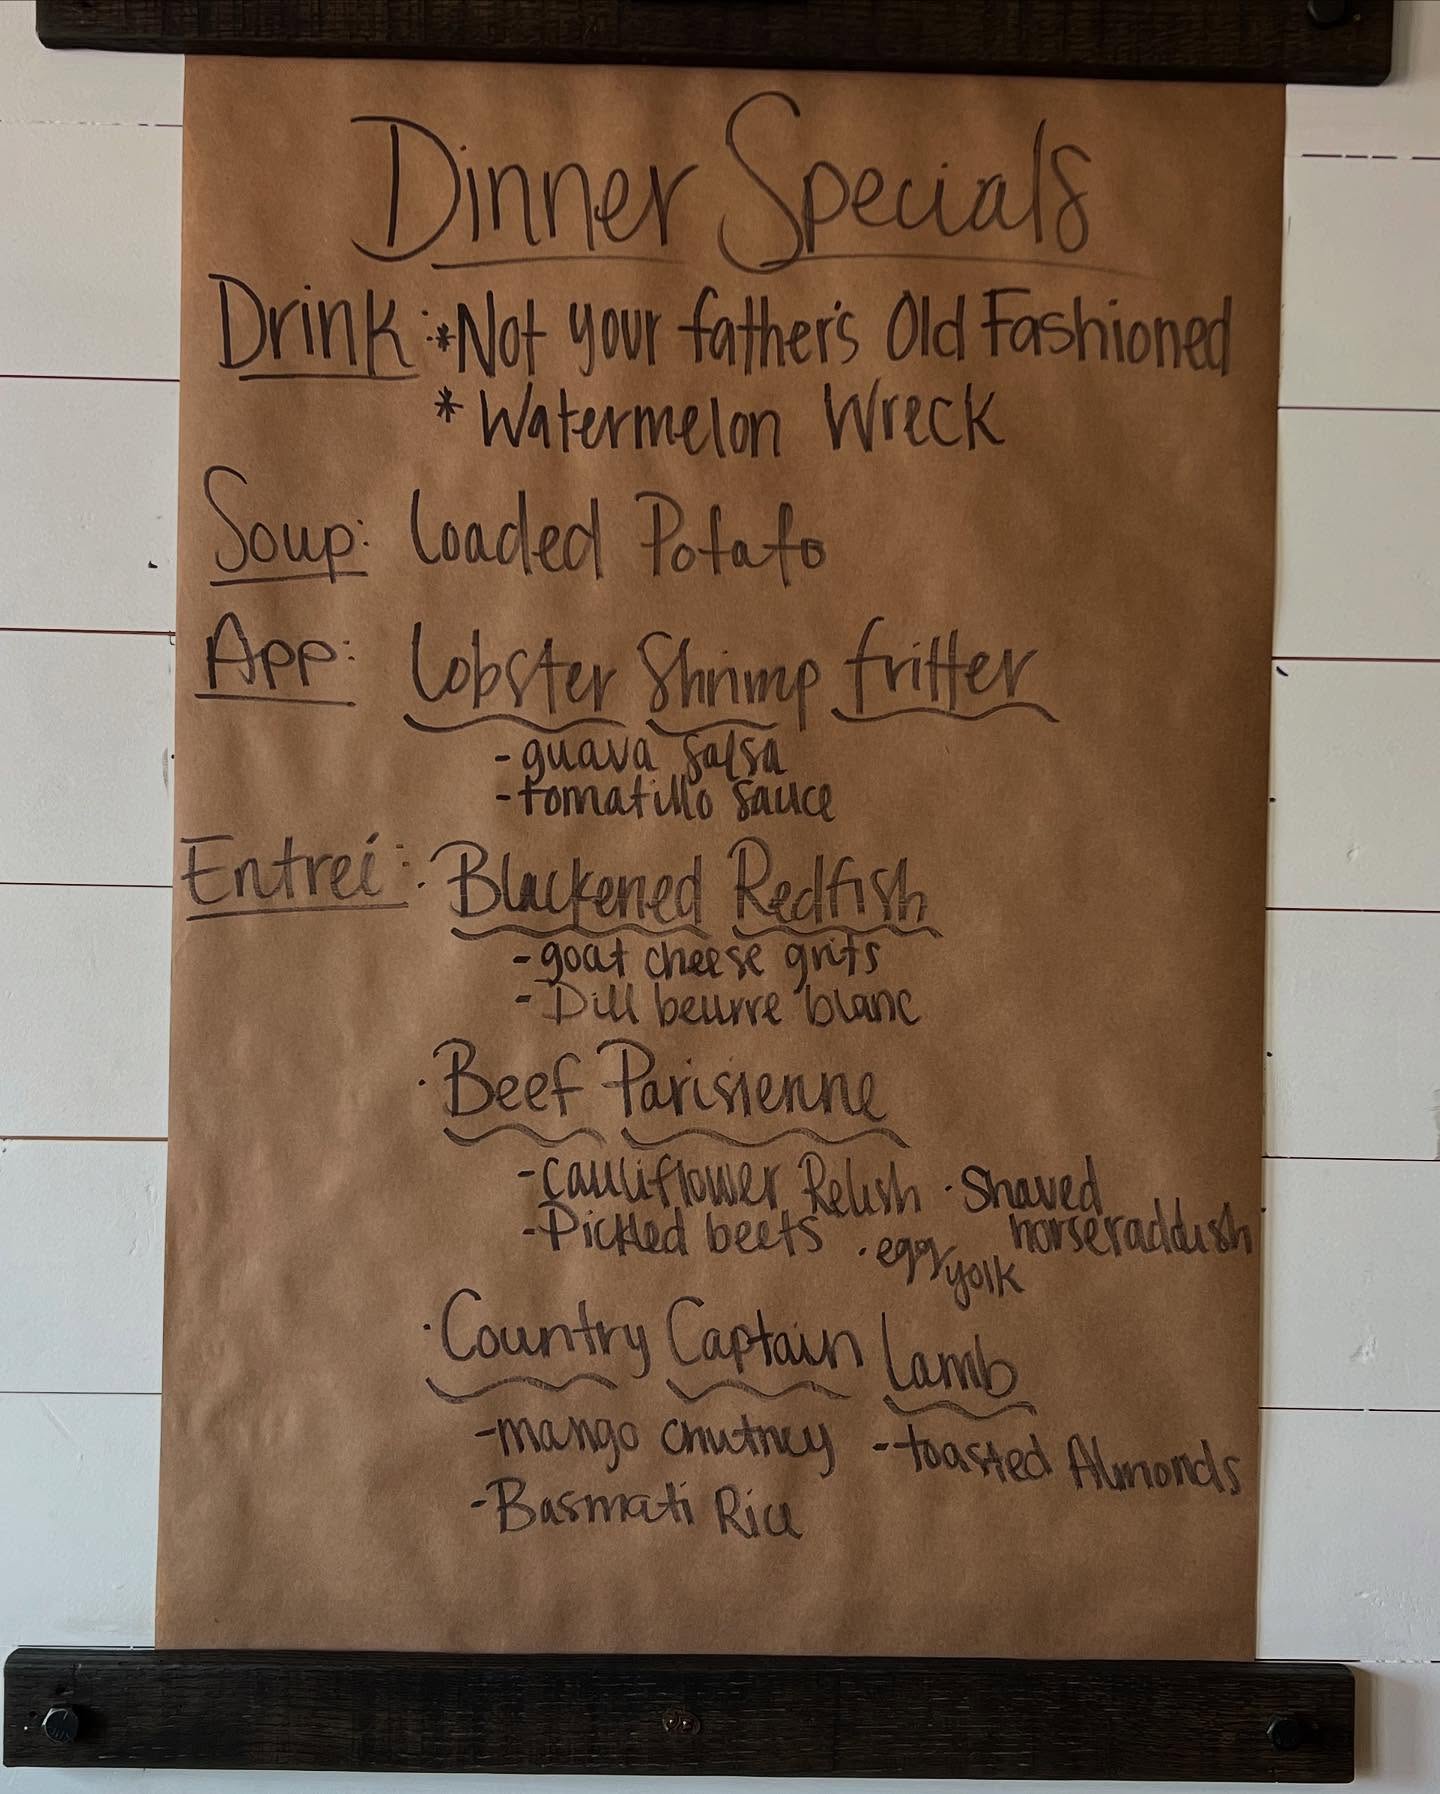 Dinner Specials
Drink: *Not your father's Old Fashioned
* Watermelon Wreck
Soup: Loaded Potato
App: Lobster Shrimp fritter
- guava salsa
- tomatillo sauce
Entreé: · Blackened Redfish
- goat cheese grits
- Dill beurre blanc
· Beef Parisienne
- cauliflower Relish · Shaved horseraddish
- Pickled beets · egg yolk
· Country Captain Lamb
- mango chutney - toasted Almonds
- Basmati Rice